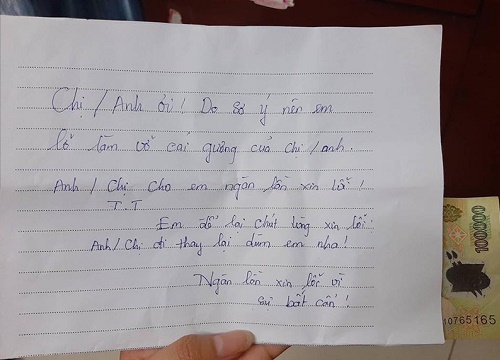 Chị / Anh ơi! Do sơ ý nên em
lỡ làm vỡ cái gương của chị / anh.
Anh / Chị cho em ngàn lần xin lỗi!
T.T
Em để lại chút lòng xin lỗi.
Anh / Chị đi thay lại dùm em nha!
Ngàn lần xin lỗi vì
sự bất cẩn!
100000
10765165